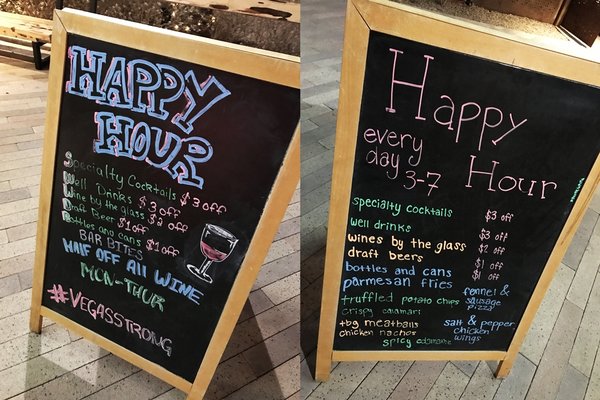 HAPPY
HOUR
Specialty Cocktails $3 off
Well Drinks $3 off
Wine by the glass $2 off
Draft Beer $1 off
Bottles and cans $1 off
BAR BITES
HALF OFF All WINE
MON-THUR
#VEGASSTRONG
Happy
Hour
every
day
3-7
specialty cocktails $3 off
well drinks $3 off
wines by the glass $2 off
draft beers $1 off
bottles and cans $1 off
parmesan fries
truffled potato chips
crispy calamari
tbg meatballs
chicken nachos
spicy edamame
fennel &
sausage
pizza
salt & pepper
chicken
wings